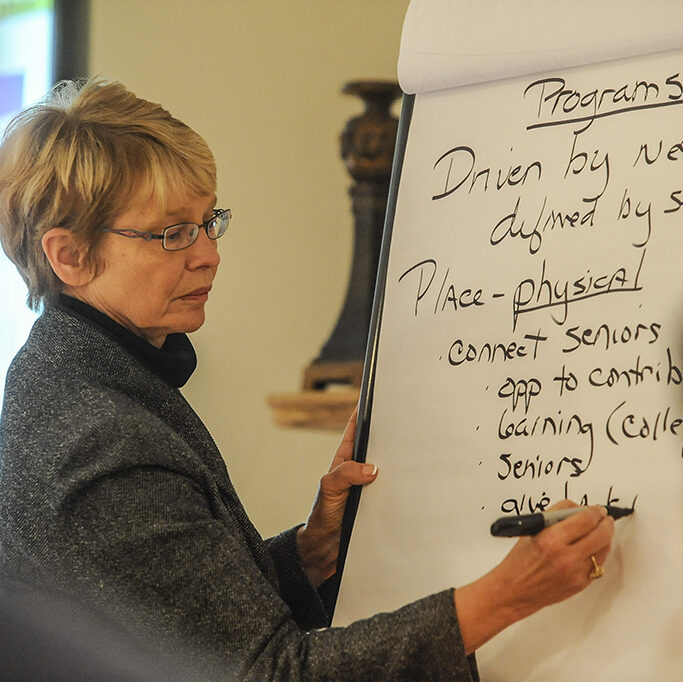 Programs
Driven by Ne
defined by s
Place - physical
· connect seniors
· opp to contrib
· learning (colle
· seniors
· give back